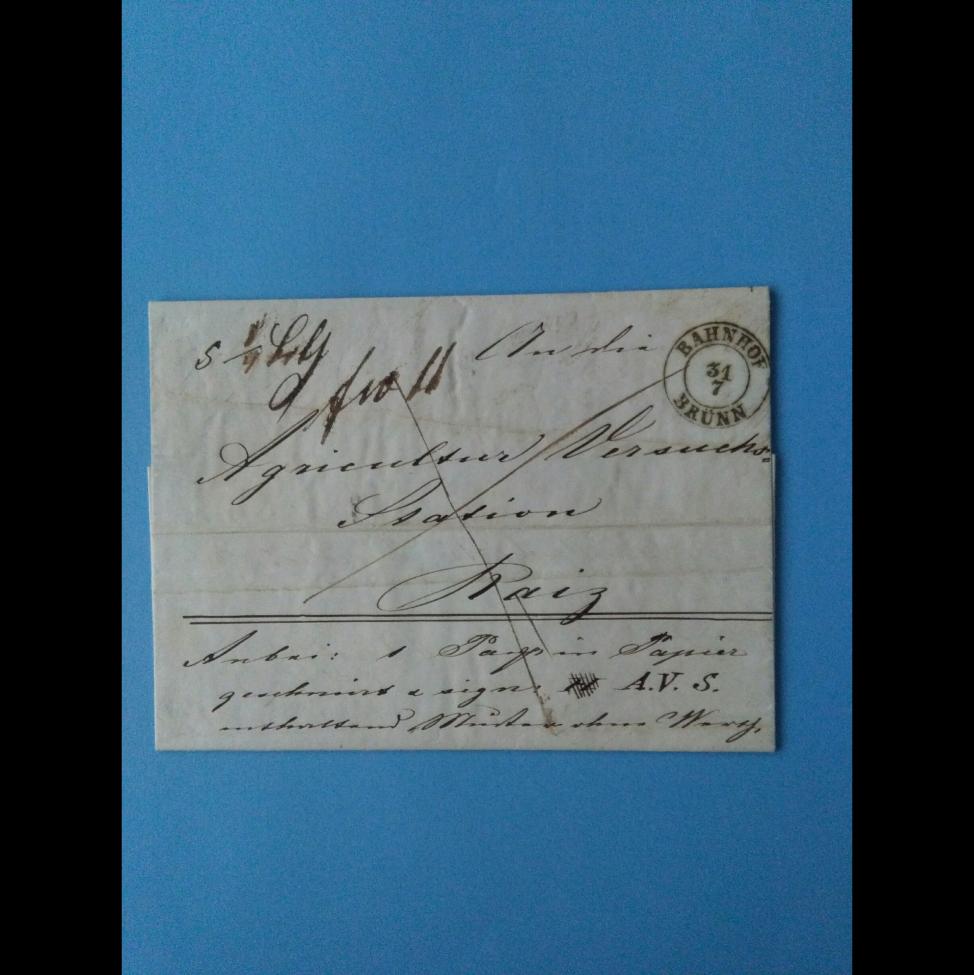 An die
BAHNHOF
31
7
BRÜNN
Agricultur Versuchs=
Station
Raiz
Anbei: 1 in Papier
geschnürt & sign: A.V.S.
enthaltend Muster ohne Werth,